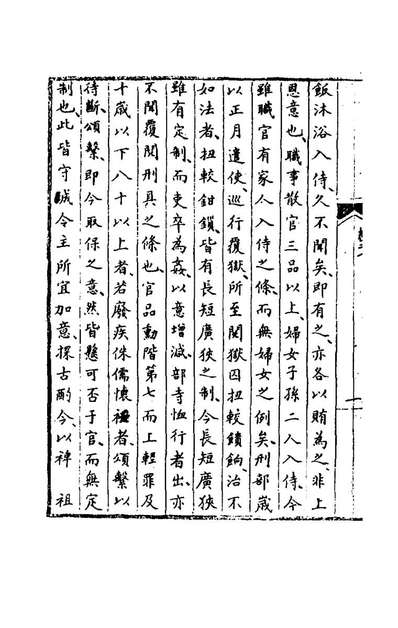 飯沐浴入侍久不聞矣即有之亦各以賄為之非上
恩意也職事散官三品以上婦女子孫二人入侍今
雖職官有家人入侍之條而無婦女之例矣刑部歲
以正月遣使巡行覆獄所至閱獄囚扭較饋餉治不
如法者扭較鉗鎖皆有長短廣狹之制今長短廣狹
雖有定制而吏卒為姦以意增減部寺恤行者出亦
不聞覆閱刑具之條也官品勳階第七而上輕罪及
十歲以下八十以上者若廢疾侏儒懷𥚽者頌繫以
待斷頌繫即今取保之意然皆懸可否于官而無定
制也此皆守城令主所宜加意採古酌今以裨祖